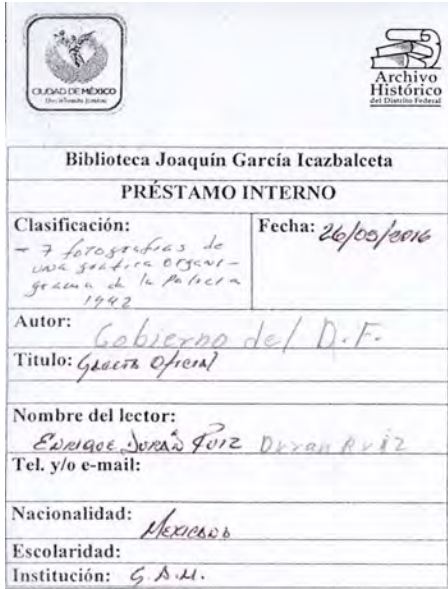 CIUDAD DE MÉXICO
Archivo
Histórico
del Distrito Federal
Biblioteca Joaquín García Icazbalceta
PRÉSTAMO INTERNO
Clasificación:
- 7 fotografias de
una grafica organi-
grama de la Policia
1942
Fecha: 26/05/2016
Autor:
Gobierno del D.F.
Titulo: Gaceta Oficial
Nombre del lector:
ENRIQUE DURÁN RUIZ Duran Ruiz
Tel. y/o e-mail:
Nacionalidad:
MEXICANO
Escolaridad:
Institución: G.A.M.